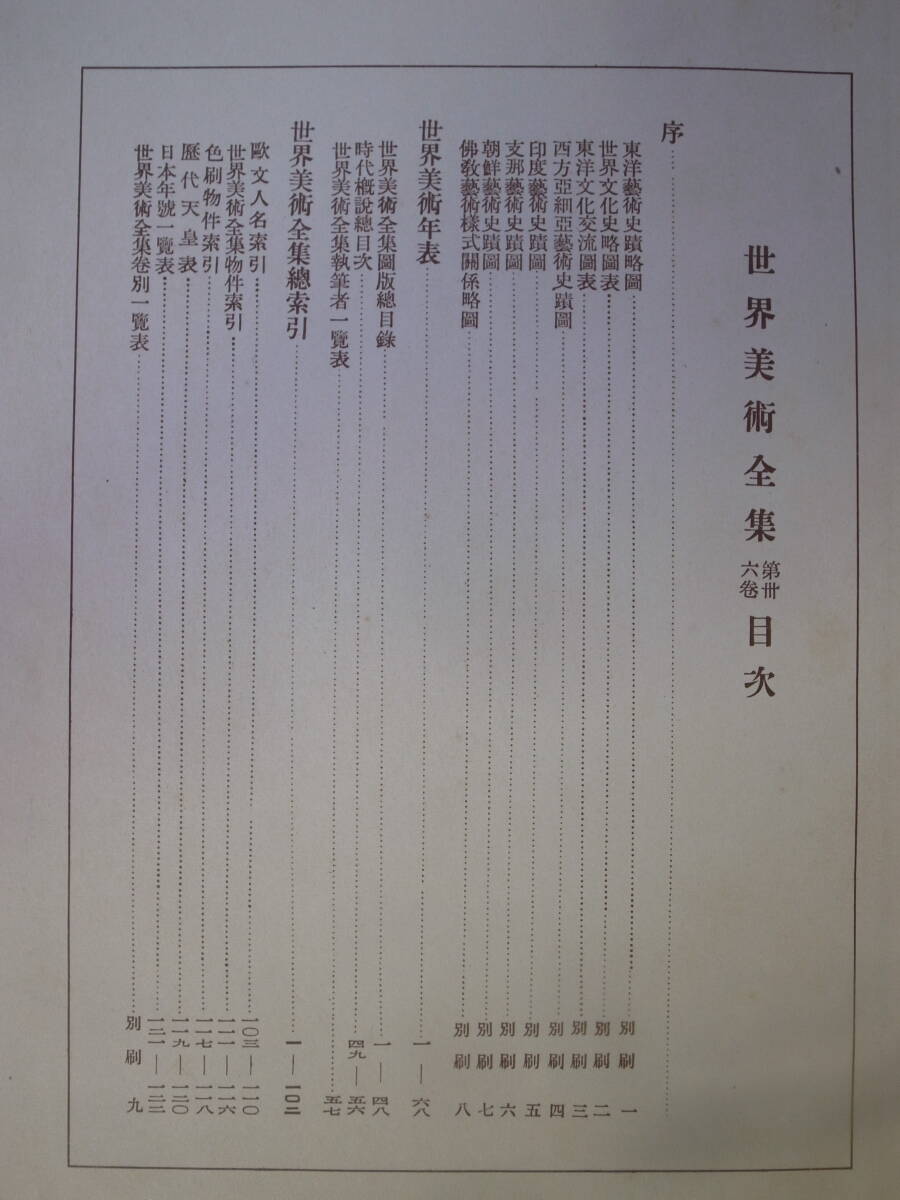 世界美術全集 第卅六卷 目次
序
東洋藝術史蹟略圖 別刷 一
世界文化史略圖表 別刷 二
東洋文化交流圖表 別刷 三
西方亞細亞藝術史蹟圖 別刷 四
印度藝術史蹟圖 別刷 五
支那藝術史蹟圖 別刷 六
朝鮮藝術史蹟圖 別刷 七
佛敎藝術樣式關係略圖 別刷 八
世界美術年表 一—六八
世界美術全集圖版總目錄 一—四八
時代槪說總目次 四九—五六
世界美術全集執筆者一覽表 五七
世界美術全集總索引 一—一〇二
歐文人名索引 一〇三—一一〇
世界美術全集物件索引 一一一—一一六
色刷物件索引 一一七—一一八
歷代天皇表 一一九—一二〇
日本年號一覽表 一二一—一二二
世界美術全集卷別一覽表 別刷 九